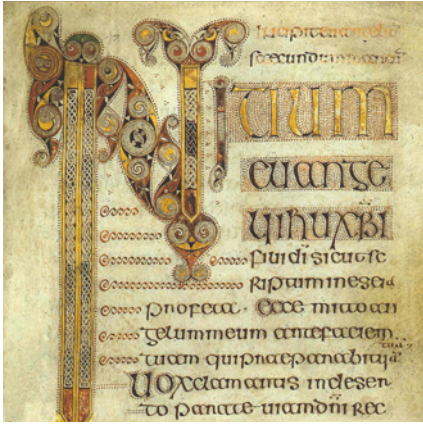 secundum
INITIUM
euange
lii ihu xpi
filii di sicut sc
riptum in eseia
profeta · Ecce mitto an
gelum meum ante faciem
tuam qui preparabit
Uox clamantis in deser
to parate uiam dni rec